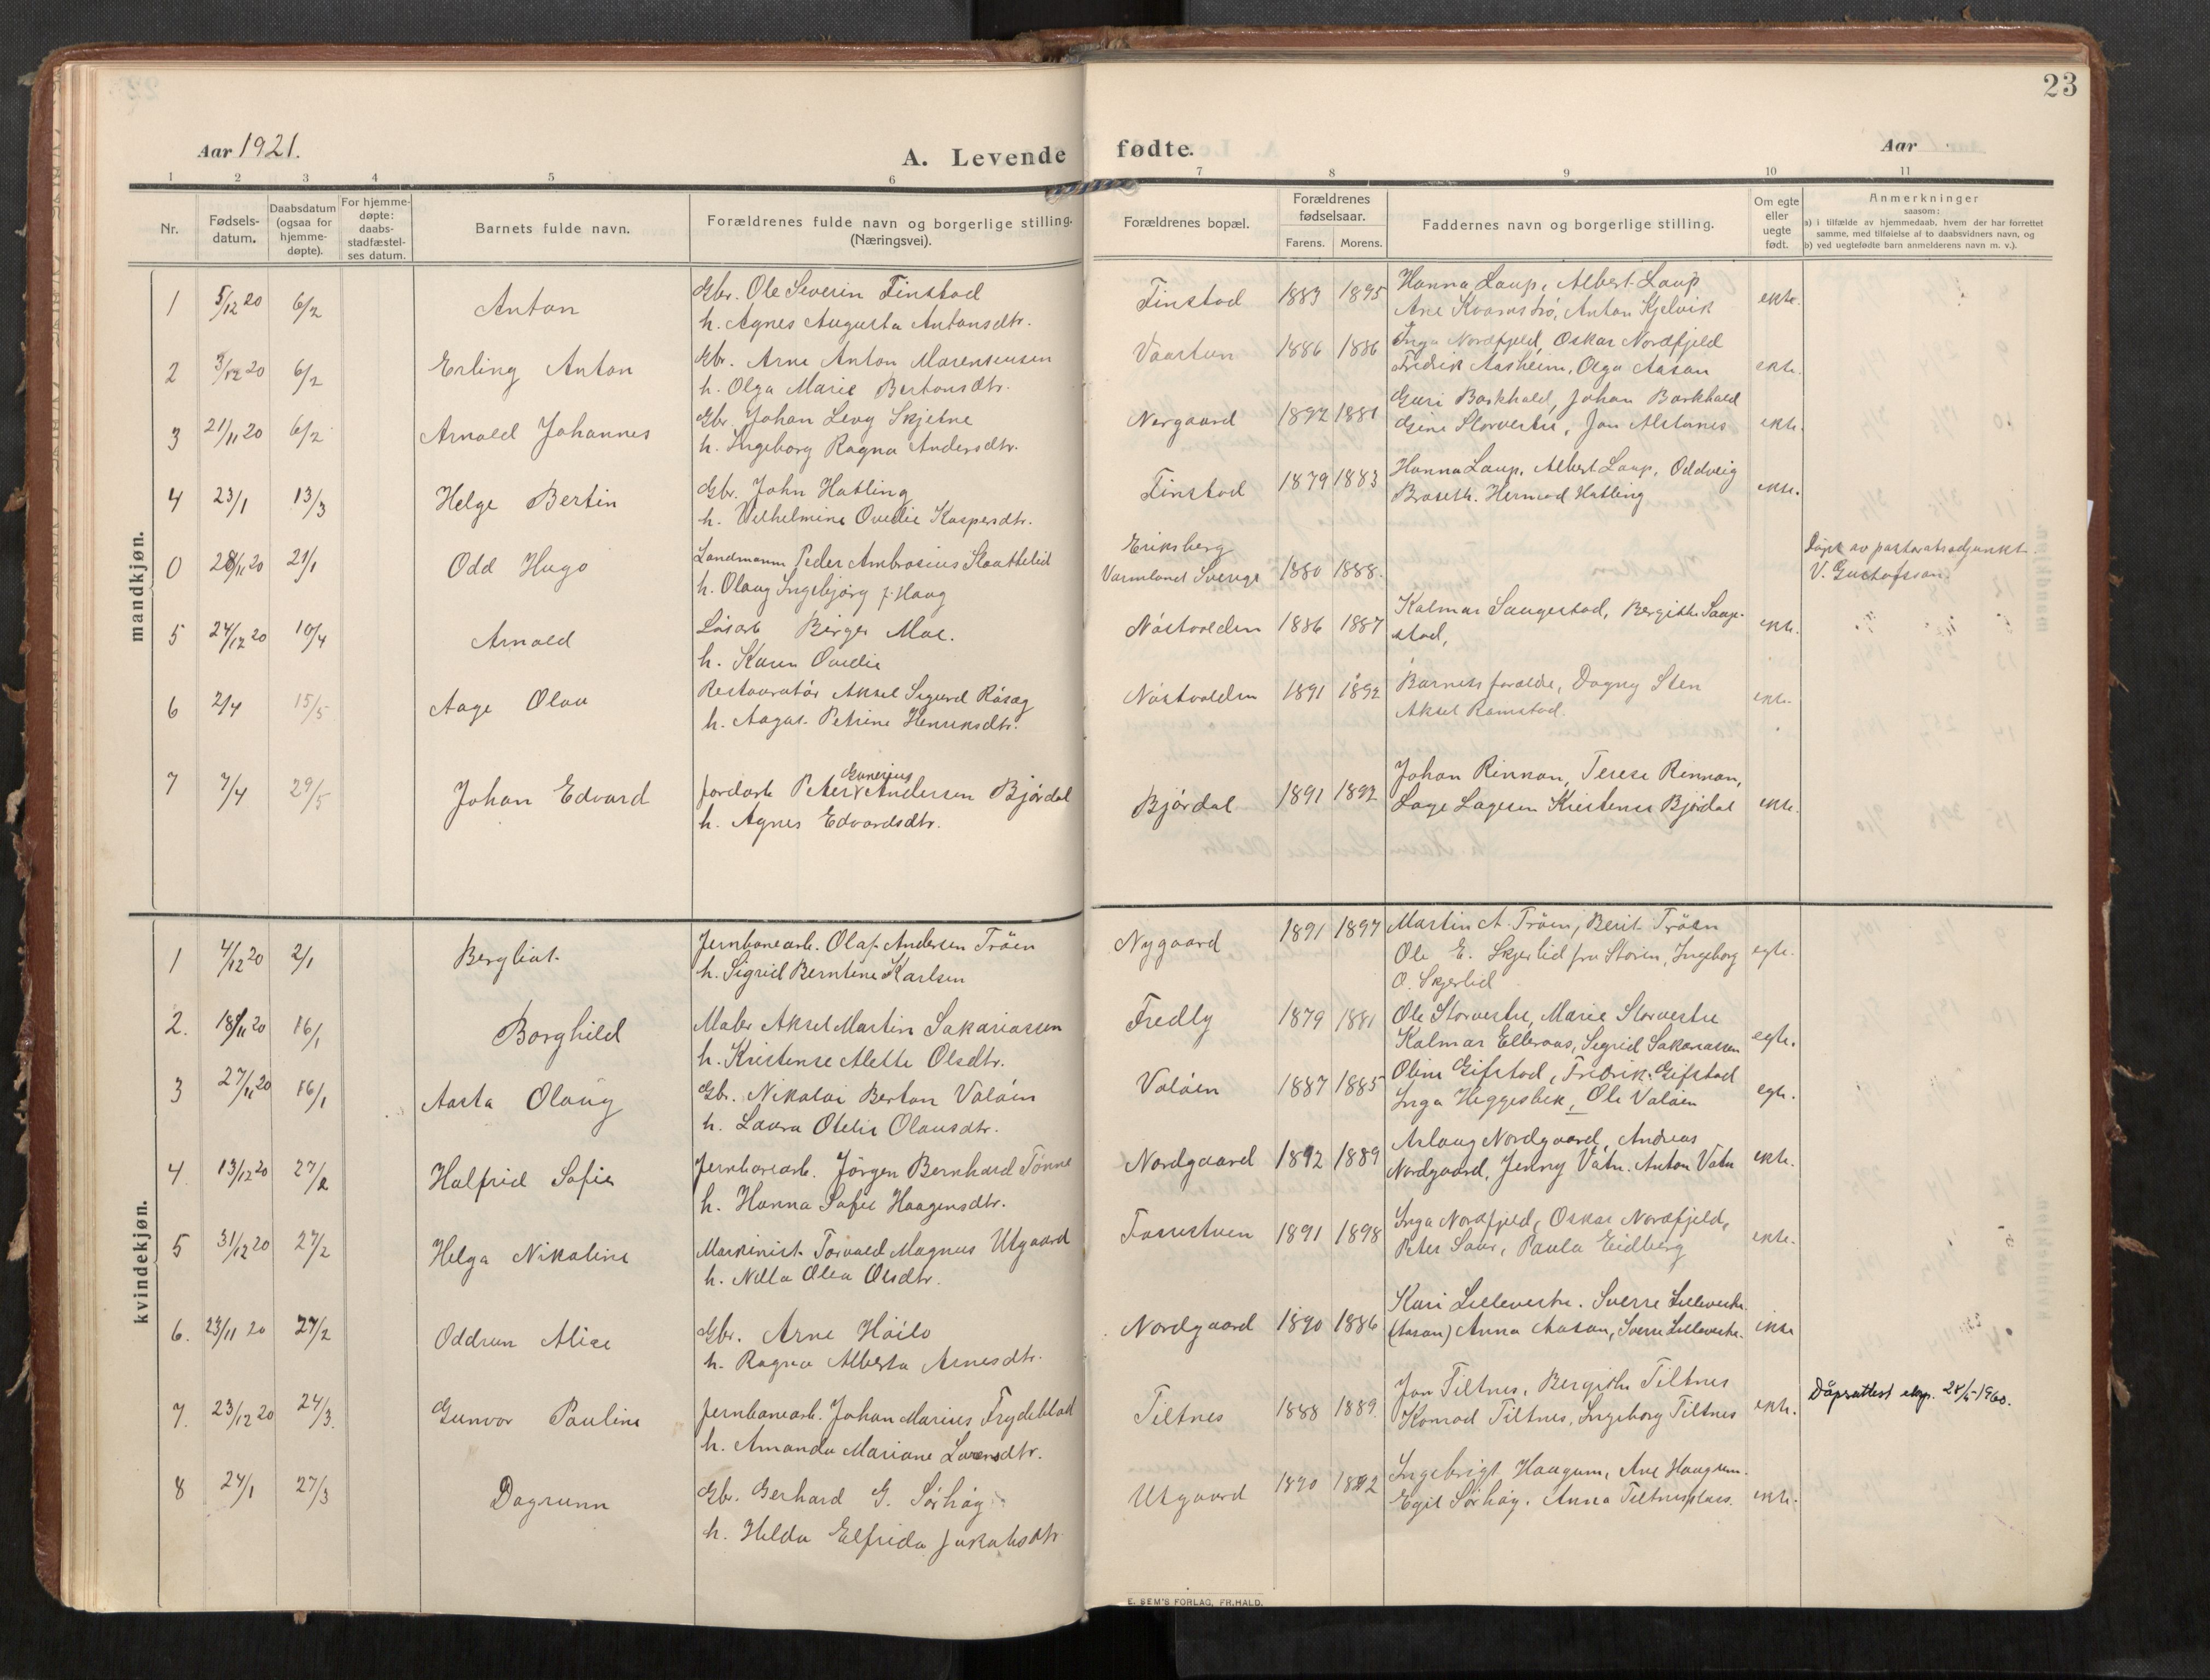 23
Aar 1921.
A. Levende fødte.
Aar
1 2 3 4 5 6 7 8 9 10 11
Nr.
Fødsels-
datum.
Daabsdatum
(ogsaa for
hjemme-
døpte).
For hjemme-
døpte:
daabs-
stadfæstel-
ses datum.
Barnets fulde navn.
Forældrenes fulde navn og borgerlige stilling.
(Næringsvei).
Forældrenes bopæl.
Forældrenes
fødselsaar.
Farens. Morens.
Faddernes navn og borgerlige stilling.
Om egte
eller
uegte
født.
Anmerkninger
saasom:
a) i tilfælde av hjemmedaab, hvem der har forrettet
samme, med tilføielse af to daabsvidners navn, og
b) ved uegtefødte barn anmelderens navn m. v.).
mandkjøn.
1 5/12 20 6/2 Anton Gbr. Ole Severin Finstad Finstad 1883 1895 Hanna Laup, Albert Laup ekte.
h. Agnes Augusta Antonsdtr. Ane Kvamstrø, Anton Kjelvik
2 3/12 20 6/2 Erling Anton Gbr. Arne Anton Vaartun 1886 1886 Inga Nordfjeld, Oskar Nordfjeld ekte.
h. Olga Marie Bertonsdtr. Fredrik Aasheim, Olga Aasan
3 21/11 20 6/2 Arnold Johannes Gbr. Johan Levy Skjetne Nergaard 1892 1881 Guri Barkhald, Johan Barkhald ekte.
h. Ingeborg Ragna Andersdtr. Gine Storvestre, Jon
4 23/1 13/3 Helge Bertin Gbr. John Hatling Finstad 1879 1883 Hanna Laup, Albert Laup, Oddveig ekte.
h. Vilhelmine Ovedie Kaspersdtr. Braseth. Hermod Hatling
0 28/11 20 21/1 Odd Hugo Landmann Peder Ambrosius Slaattelid Eriksberg
h. Olaug Ingebjørg f. Haug Varmland Sverige 1880 1888. Døpt av pastoratsadjunkt
V. Gustafsson.
5 24/12 20 10/4 Arnold Løsarb Birger Moe. Nøstvolden 1886 1887 Kalmar Saugestad, Bergithe Sauge- ekte.
h. Karen Ovedie stad,
6 2/4 15/5 Aage Olav Restauratør Aksel Sigurd Røsæg Nøstvolden 1891 1892 Barnets forældre, Dagny Sten ekte.
h. Aagot Petrine Henriksdtr. Aksel Ramstad.
7 7/4 29/5 Johan Edvard Jordarb Peter Gunerius Andersen Bjørdal Bjørdal 1891 1892 Johan Rinnan, Terese Rinnan, ekte.
h. Agnes Edvardsdtr. Lage Lagesen Kristense Bjørdal
kvindekjøn.
1 4/12 20 2/1 Bergliot. Jernbanearb. Olaf Andersen Trøen Nygaard 1891 1897 Martin A. Trøen, Berit Trøen egte.
h. Sigrid Berntine Karlsen Ole E. Skjerlid fra Støren, Ingeborg
O. Skjerlid
2. 18/11 20 16/1 Borghild Maler Aksel Martin Sakariassen Fredly 1879 1881 Ole Storvestre, Marie Storvestre egte.
h. Kristense Alette Olsdtr. Kalmar Elleraas, Sigrid Sakariassen
3 27/11 20 16/1 Aasta Olaug Gbr. Nikolai Berton Valøen Valøen 1887 1885 Oline Gifstad, Fredrik Gifstad egte.
h. Laura Otelie Olausdtr. Inga Heggesbek, Ole Valøen
4 13/12 20 27/2 Halfrid Sofie Jernbanearb. Jørgen Bernhard Tønne Nordgaard 1892 1889 Aslaug Nordgaard, Andreas ekte.
h. Hanna Sofie Haagensdtr. Nordgaard, Jenny Vatn. Anton Vatn
5 31/12 20 27/2 Helga Nikoline Maskinist Torvald Magnus Utgaard 1891 1898 Inga Nordfjeld, Oskar Nordfjeld, ekte.
h. Nella Olea Olsdtr. Peter Saur, Paula Eidberg
6. 23/11 20 27/2 Oddrun Alise Gbr. Arne Høilo Nordgaard 1890 1886 Kari Lillevestre. Sverre Lillevestre ekte
h. Ragna Alberta Arnesdtr. (Aasan) Anna Aasan, Sverre Lillevestre.
7. 23/12 20 24/3. Gunvor Pauline Jernbanearb. Johan Marius Frydeblad Tiltnes 1888 1889 Jon Tiltnes, Bergithe Tiltnes ekte. Dåpsattest eksp. 28/5-1960.
h. Amanda Mariane Lorensdtr. Konrad Tiltnes, Ingeborg Tiltnes
8 24/1 27/3 Dagrunn Gbr. Gerhard G. Sørhøg Utgaard 1890 1892 Ingebrigt Haugum, Ane Haugum. ekte.
h. Hilda Elfrida Jakobsdtr Egil Sørhøg. Anna Tiltnesplass.
E. SEM'S FORLAG, FR.HALD.